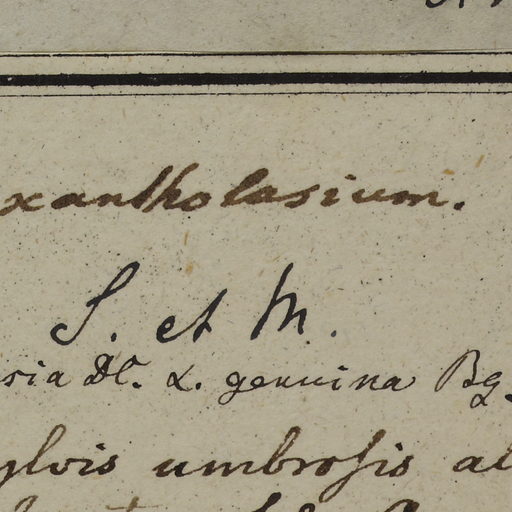 xantholasium.
S. et M.
sia DC. α. genuina Bg.
ylvis umbrosis al